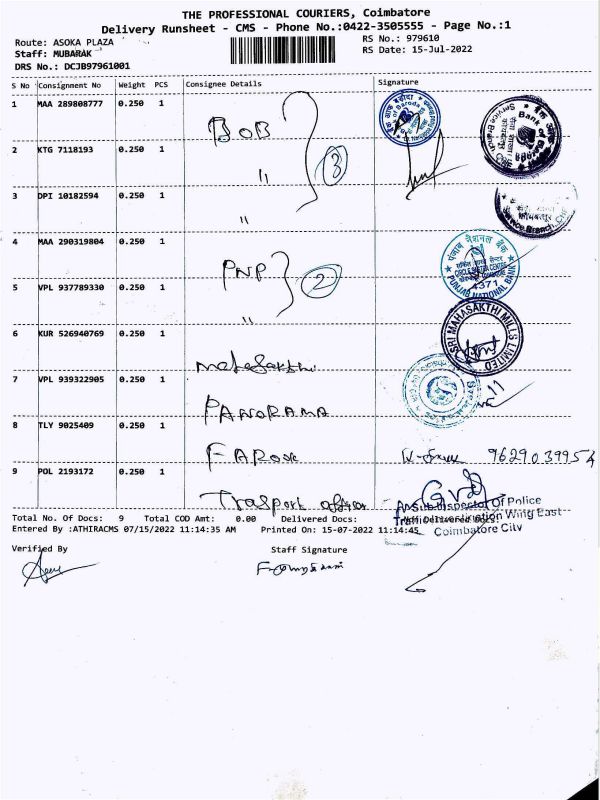 THE PROFESSIONAL COURIERS, Coimbatore
Delivery Runsheet - CMS - Phone No.:0422-3505555 - Page No.:1
Route: ASOKA PLAZA
RS No.: 979610
Staff: MUBARAK
RS Date: 15-Jul-2022
DRS No.: DCJB97961001
S No Consignment No Weight PCS Consignee Details Signature
1 MAA 289808777 0.250 1 BOB
2 KTG 7118193 0.250 1 " 3
3 DPI 10182594 0.250 1 "
4 MAA 290319804 0.250 1 PNP
5 VPL 937789330 0.250 1 " 2
6 KUR 526940769 0.250 1
7 VPL 939322905 0.250 1 PANORAMA
8 TLY 9025409 0.250 1 FAROOK 9629039954
9 POL 2193172 0.250 1
Bank of Baroda
Service Branch
Service Branch
पंजाब नैशनल बैंक
PUNJAB NATIONAL BANK
4371
SRI MAHASAKTHI MILLS LIMITED
Sub Inspector Of Police
Wing East
Coimbatore City
Total No. Of Docs: 9 Total COD Amt: 0.00 Delivered Docs:
Entered By :ATHIRACMS 07/15/2022 11:14:35 AM Printed On: 15-07-2022 11:14:45
Verified By Staff Signature